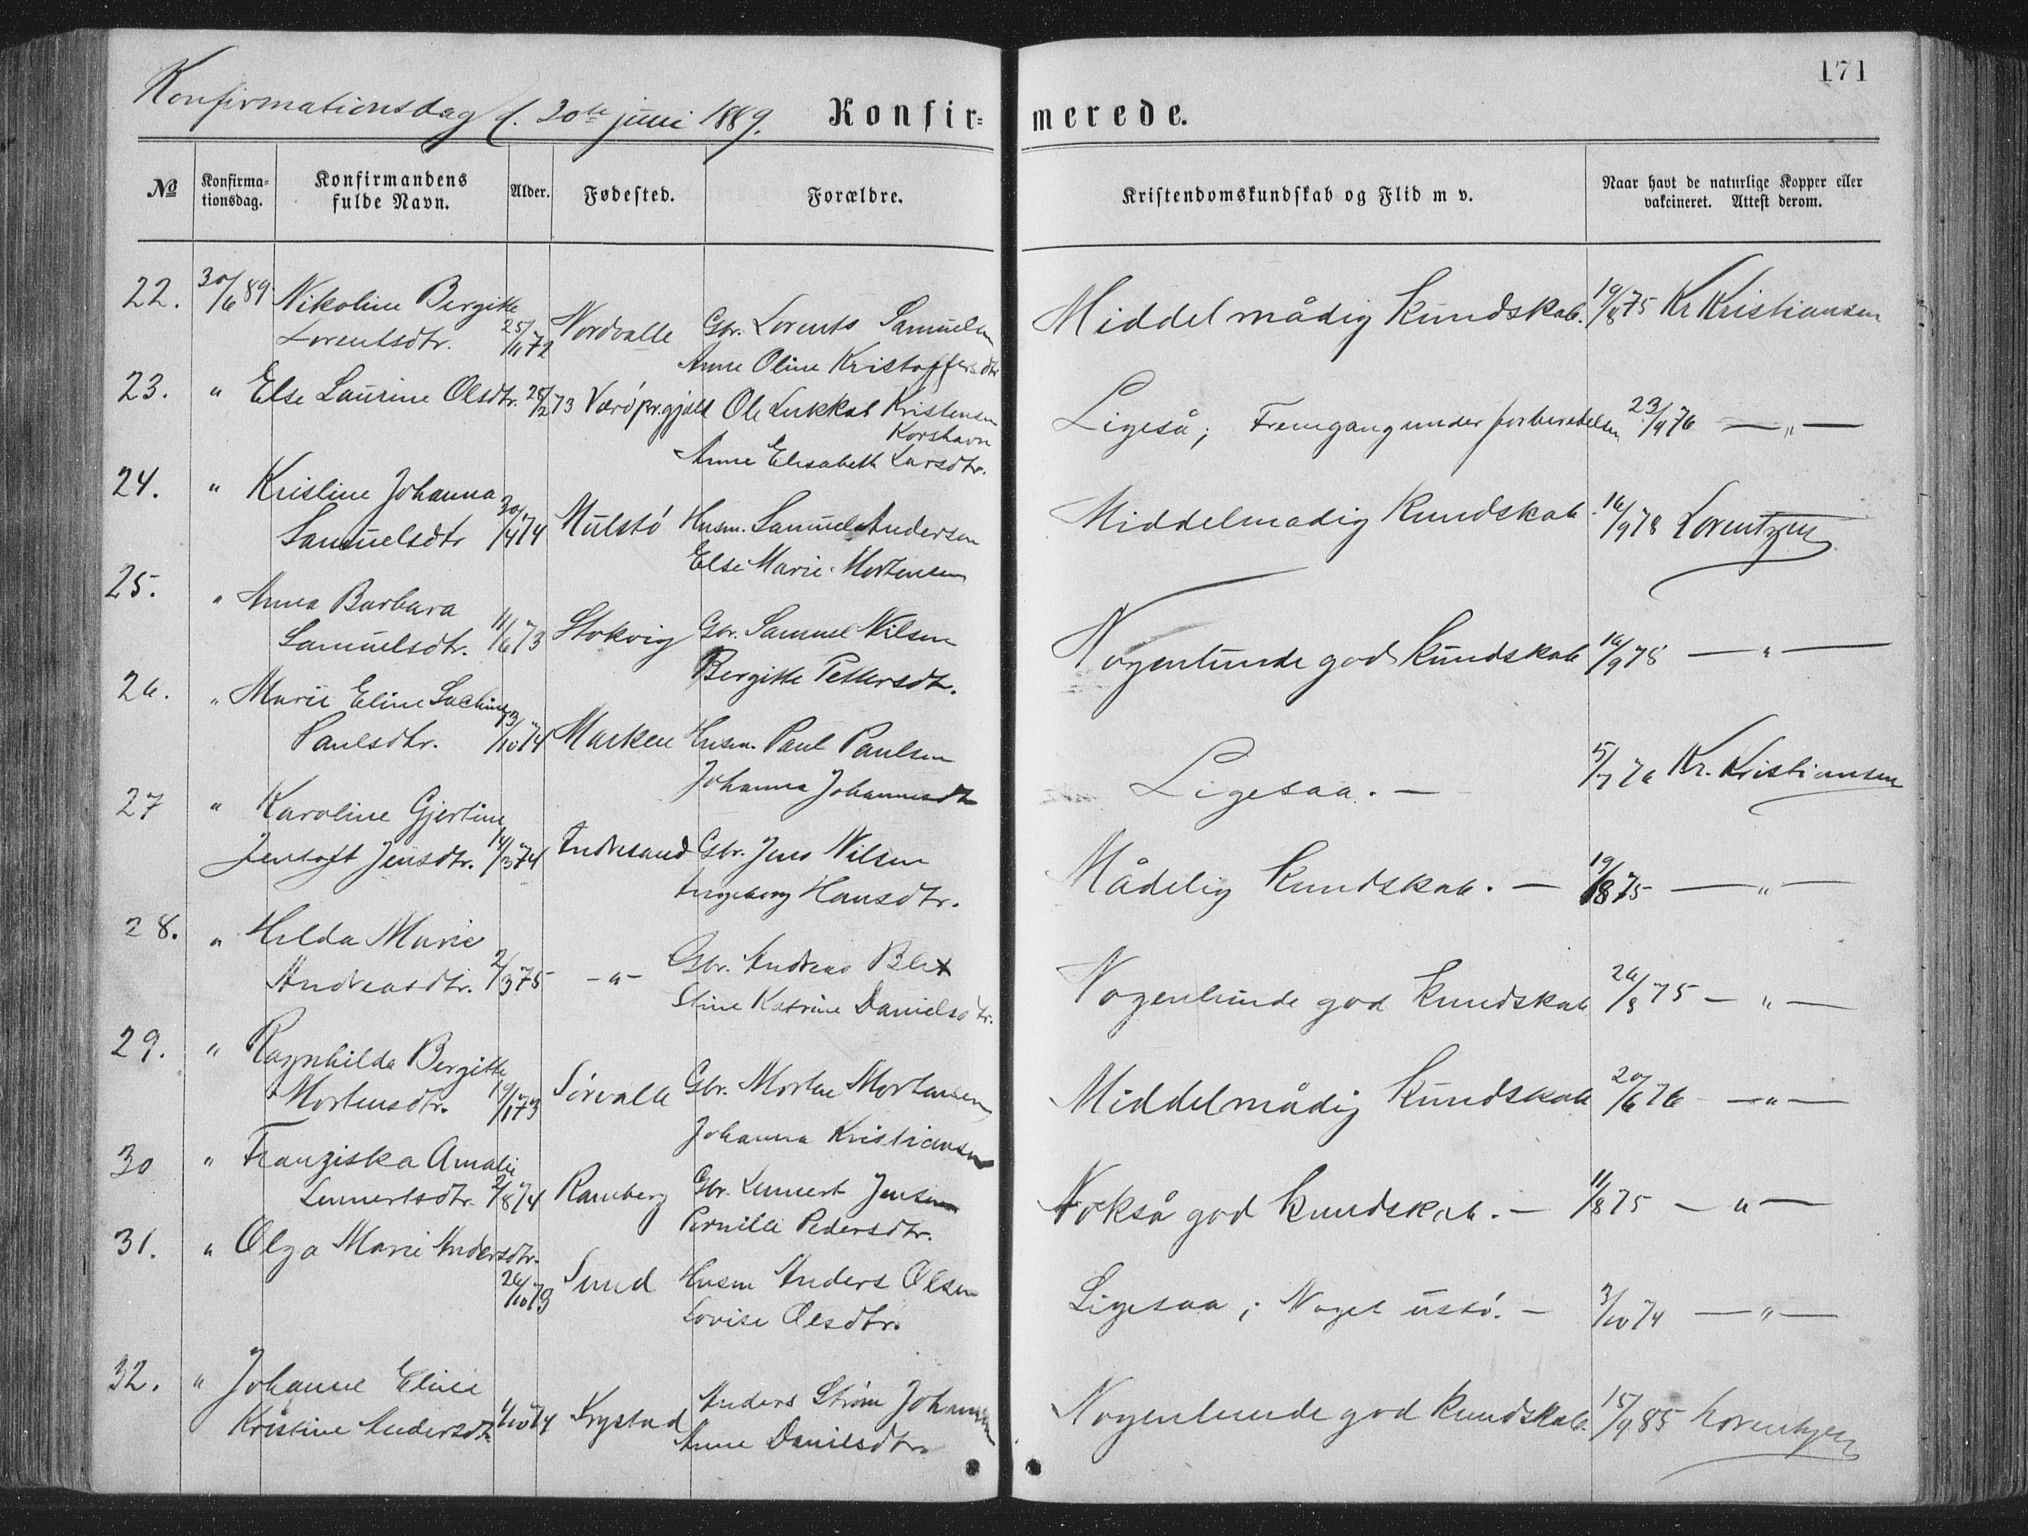 171
Konfirmationsdag d. 30te juni 1889.
Konfirmerede.
No
Konfirmationsdag.
Konfirmandens fulde Navn.
Alder.
Fødested.
Forældre.
Kristendomskundskab og Flid m v.
Naar havt de naturlige Kopper eller vakcineret. Attest derom.
22. 30/6 89 Nikoline Bergitte Nordvalle Gbr. Lorents Samuelsen Middelmådig Kundskab. 19/8 75 Kr Kristiansen
Lorentsdtr. 25/11 72 Anne Oline Kristoffersdtr
23. " Else Laurine Olsdtr. 28/2 73 Værö pr.gjæld Ole Lukkas Kristensen Ligeså; Fremgang under forberedelsen 23/9 76 — " —
Korshavn
Anne Elisabeth Larsdtr.
24. " Kristine Johanna Mulstö Husm. Samuel Andersen Middelmadig Kundskab. 16/9 78 Lorentzen
Samuelsdtr 30/4 74 Else Marie Mortensen
25. " Anna Barbara Stokvig Gbr. Samuel Nilsen Nogenlunde god Kundskab 16/9 78 — " —
Samuelsdtr. 11/6 73 Bergitte Pettersdtr.
26. " Marie Eline
Paulsdtr. 23/10 74 Marken Husm. Paul Paulsen Ligesaa. — 5/7 76 Kr. Kristiansen
Johanna Johannesdtr
27 " Karoline Gjertine
Jentoft Jensdtr. 14/3 74 Andresand Gbr. Jens Nilsen Mådelig Kundskab. — 19/8 75 — " —
Ingeborg Hansdtr.
28. " Hilda Marie
Andreasdtr. 2/3 75 - " - Gbr. Andreas Blix Nogenlunde god Kundskab 26/8 75 — " —
Stine Katrine Danielsdtr.
29. " Ragnhilda Bergitte
Mortensdtr. 19/1 73 Sörvalle Gbr. Morten Mortensen Middelmådig Kundskab 20/6 76 — " —
Johanna Kristiansen
30 " Franziska Amalie
Lennertsdtr. 2/8 74 Ramberg Gbr. Lennert Jensen Nokså god Kundskab. — 11/8 75 — " —
Pernille Pedersdtr.
31. " Olga Marie Andersdtr.
26/10 73 Sund Husm Anders Olsen Ligesaa; Noget ustö. — 3/10 74 — " —
Lovise Olsdtr.
32. " Johanne Eline Anders Ström Johansen Nogenlunde god Kundskab. 15/9 85 Lorentzen
Kristine Andersdtr 1/10 74 Krystad Anne Danielsdtr.